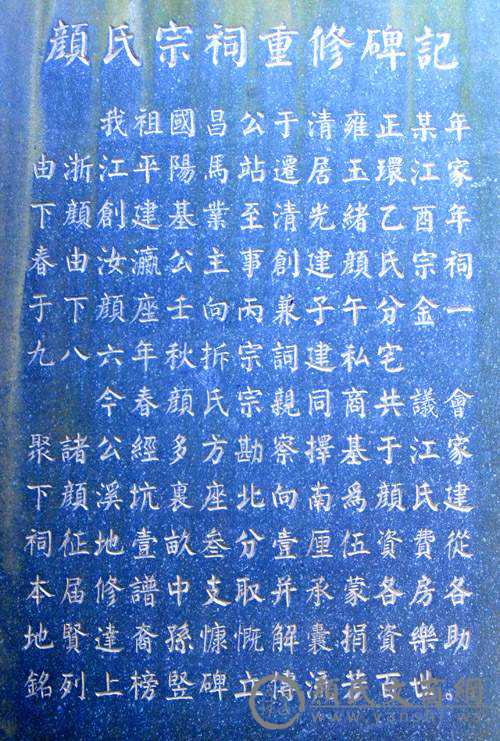 顏氏宗祠重修碑記
我祖國昌公于清雍正某年
由浙江平陽馬站遷居玉環江家
下顏創建基業至清光緒乙酉年
春由汝瀛公主事創建顏氏宗祠
于下顏座壬向丙兼子午分金一
九八六年秋拆宗詞建私宅
今春顏氏宗親同商共議會
聚諸公經多方勘察擇基于江家
下顏溪坑裏座北向南為顏氏建
祠征地壹畝叁分壹厘伍資費從
本届修譜中支取并承蒙各房各
地賢達裔孫慷慨解囊捐資樂助
銘列上榜竪碑立傳流芳百世。